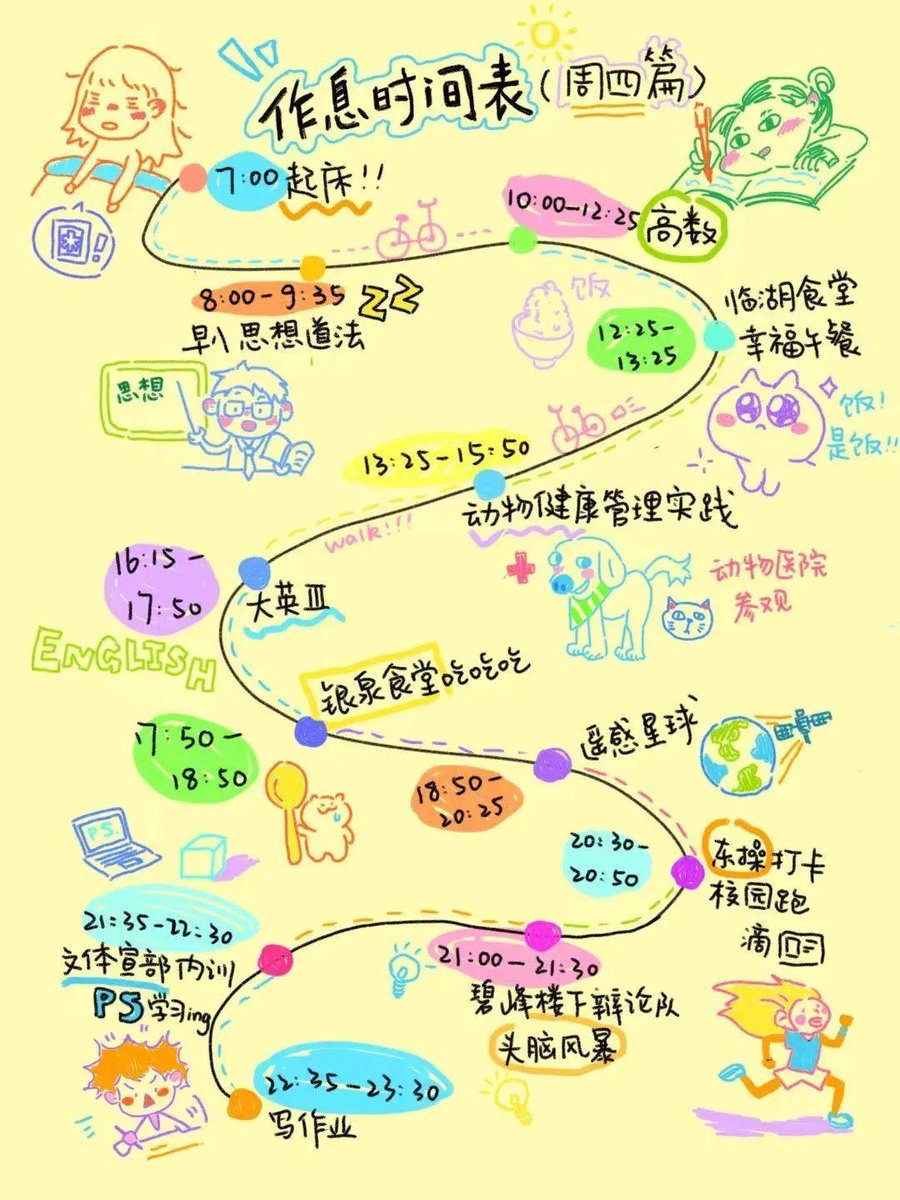 作息时间表(周四篇)
7:00 起床!!
10:00-12:25 高数
8:00-9:35 ZZ
早八 思想道法
思想
饭
临湖食堂
幸福午餐
12:25-
13:25
饭!
是饭!!
13:25-15:50
动物健康管理实践
walk!!!
动物医院
参观
16:15-
17:50
大英Ⅲ
ENGLISH
银泉食堂吃吃吃
17:50-
18:50
遥感星球
18:50-
20:25
PS
20:30-
20:50
东操打卡
校园跑
滴
21:35-22:30
文体宣部内训
PS学习ing
21:00-21:30
碧峰楼下辩论队
头脑风暴
22:35-23:30
写作业